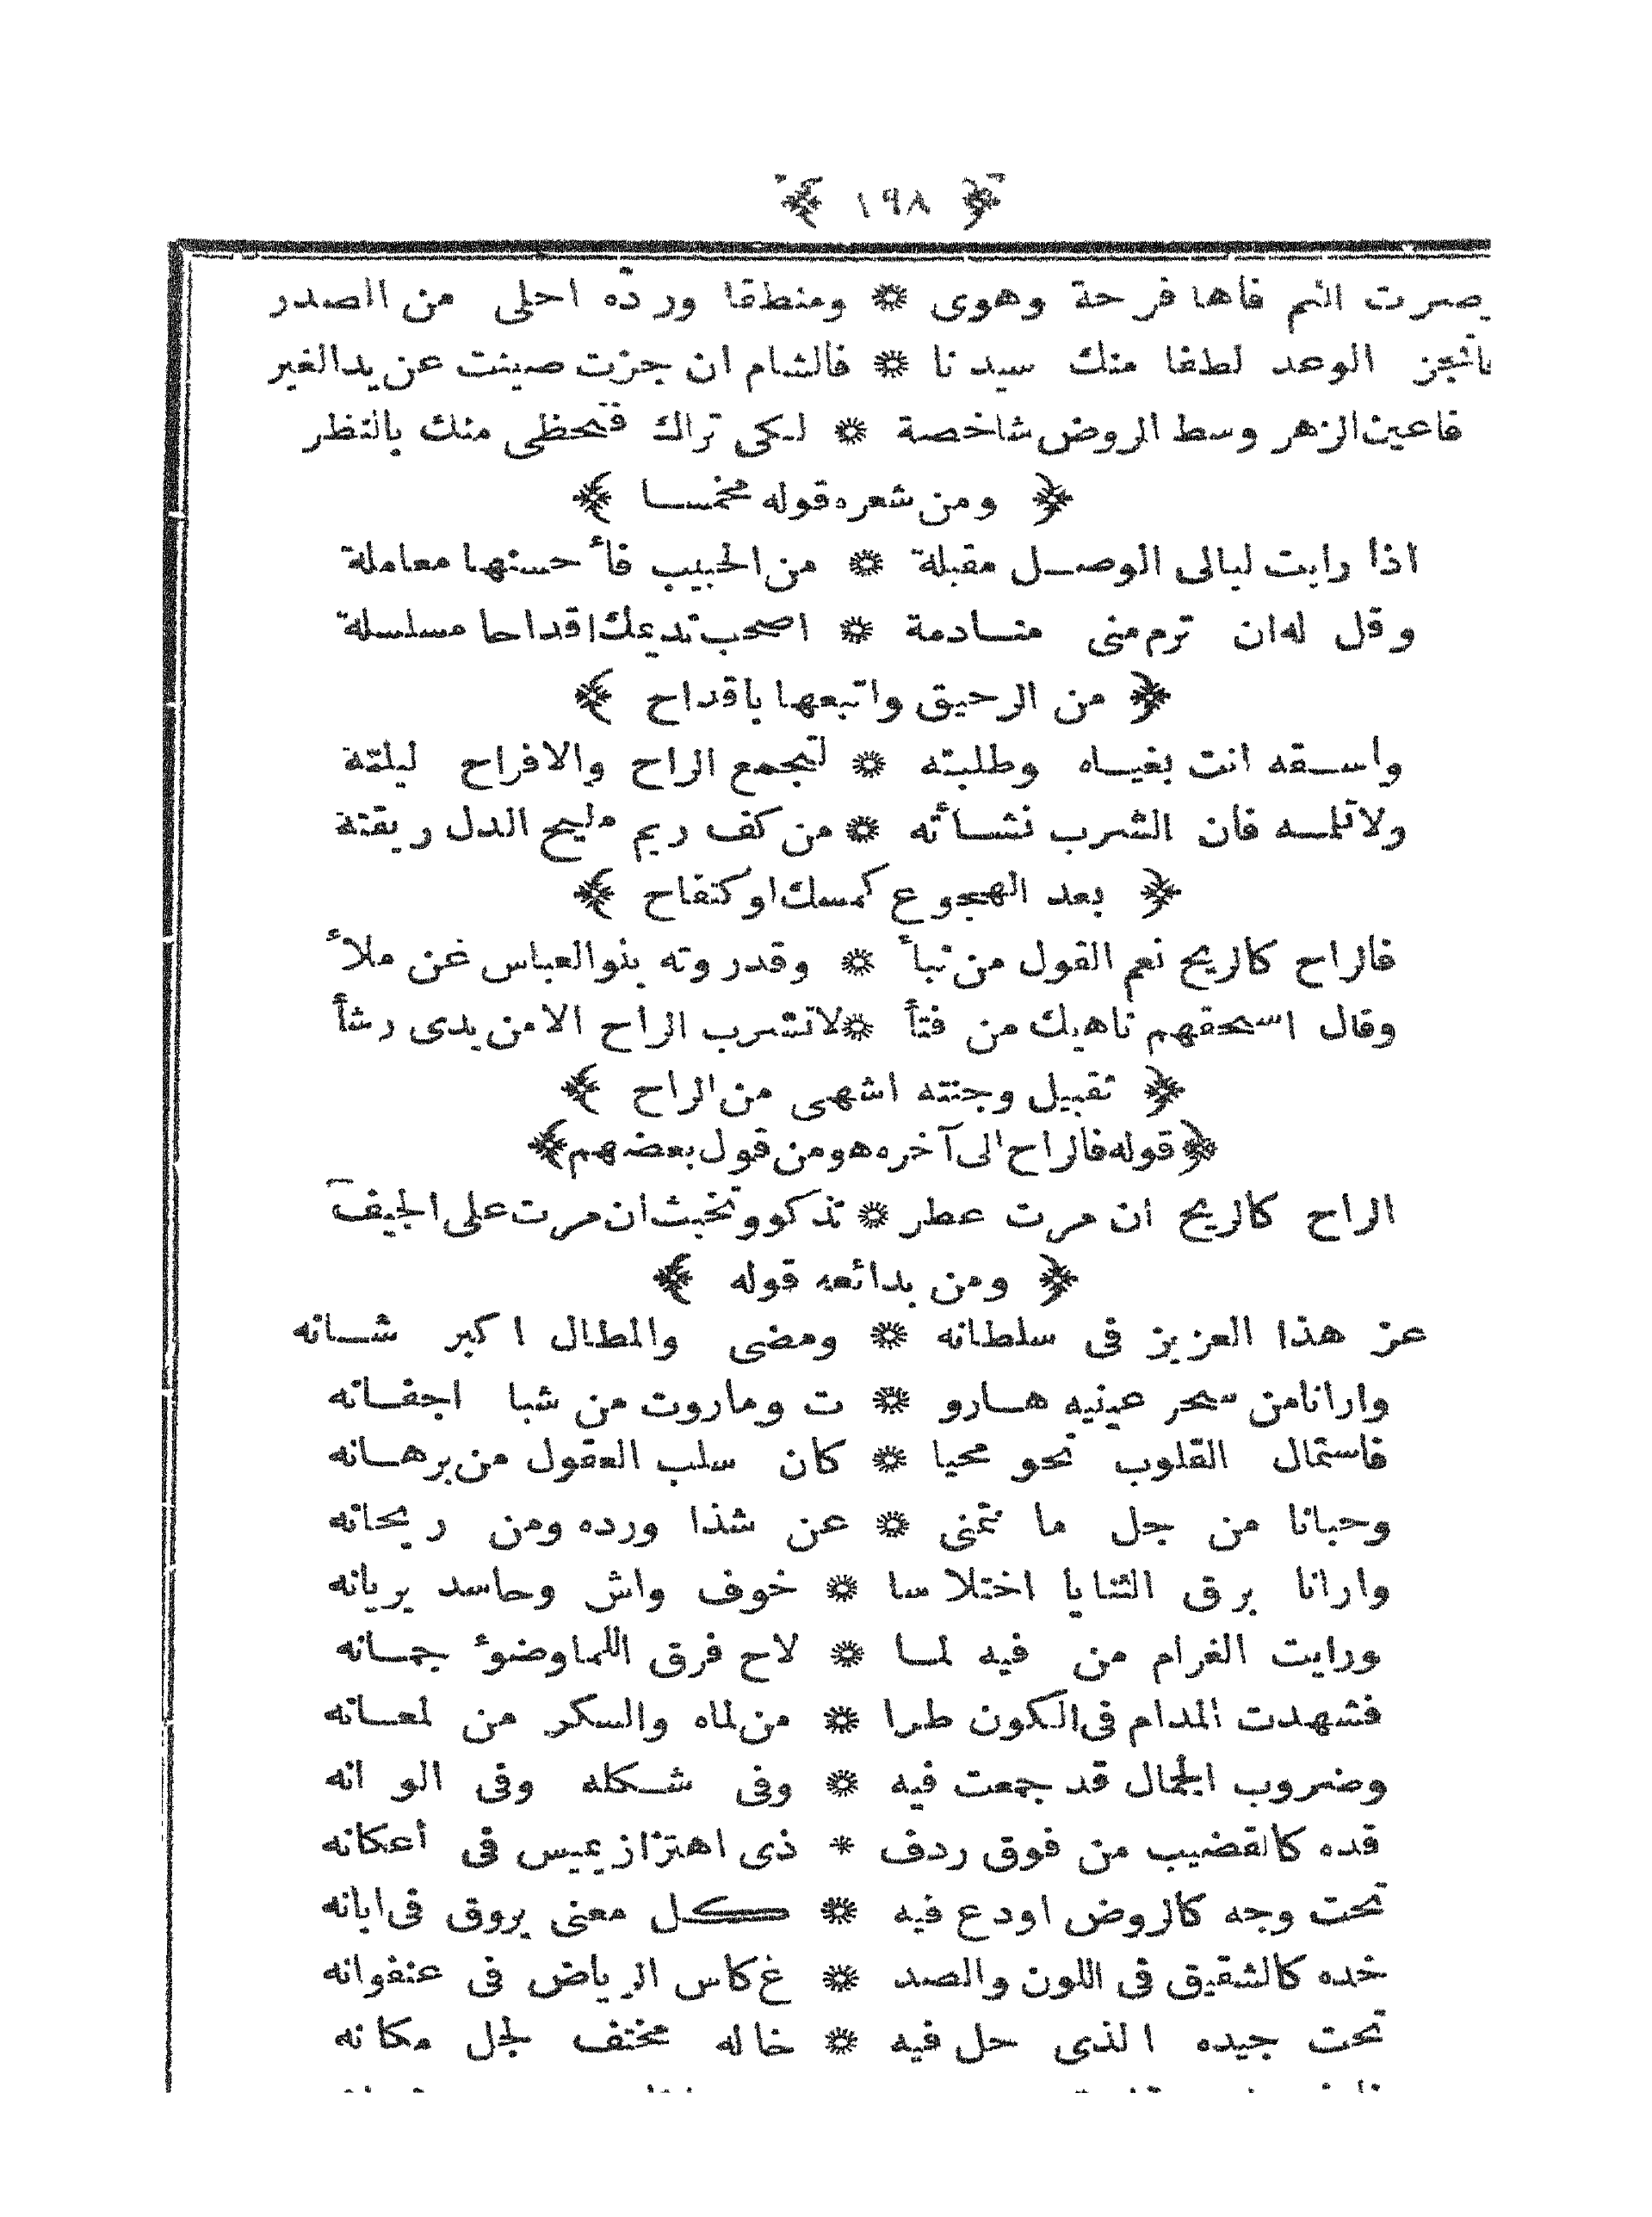 ﴿ ١٩٨ ﴾
صرت الثم فاها فرحة وهوى * ومنطقا ورده احلى من الصدر
فانجز الوعد لطفا منك سيدنا * فالشام ان جزت صينت عن يد الغير
فاعين الزهر وسط الروض شاخصة * لكى تراك فتحظى منك بالنظر
﴿ ومن شعره قوله مخمسا ﴾
اذا رايت ليالى الوصـل مقبلة * من الحبيب فأحسنها معاملة
وقل له ان ترم منى منـادمة * اصحب نديمك اقداحا مسلسلة
﴿ من الرحيق واتبعها باقداح ﴾
واسـقه انت بغيـاه وطلبته * لتجمع الراح والافراح ليلته
ولا تلمـه فان الشرب نشـأته * من كف ريم مليح الدل ريقته
﴿ بعد الهجوع كمسك او كتفاح ﴾
فالراح كالريح نعم القول من نبأ * وقد روته بنو العباس عن ملأ
وقال اسحقهم ناهيك من فتأ * لا تشرب الراح الا من يدى رشأ
﴿ تقبيل وجنته اشهى من الراح ﴾
﴿ قوله فالراح الى آخره هو من قول بعضهم ﴾
الراح كالريح ان مرت عطر * تذكو وتخبث ان مرت على الجيف
﴿ ومن بدائعه قوله ﴾
عز هذا العزيز فى سلطانه * ومضى والمطال اكبر شـانه
وارانا من سحر عينيه هـارو * ت وماروت من شبا اجفـانه
فاستمال القلوب نحو محيا * كان سلب العقول من برهـانه
وحبانا من جل ما نتمنى * عن شذا ورده ومن ريحانه
وارانا برق الثنايا اختلاسا * خوف واش وحاسد يريانه
ورايت الغرام من فيه لمـا * لاح فرق اللما وضوء جمـانه
فشهدت المدام فى الكون طرا * من لماه والسكر من لمعـانه
وضروب الجمال قد جمعت فيه * وفى شـكله وفى الوانه
قده كالقضيب من فوق ردف * ذى اهتزاز يميس فى أعكانه
تحت وجه كالروض اودع فيه * كـل معنى يروق فى ابانه
خده كالشقيق فى اللون والصد * غ كاس الرياض فى عنفوانه
تحت جيده الذى حل فيه * خاله مختف لجل مكانه